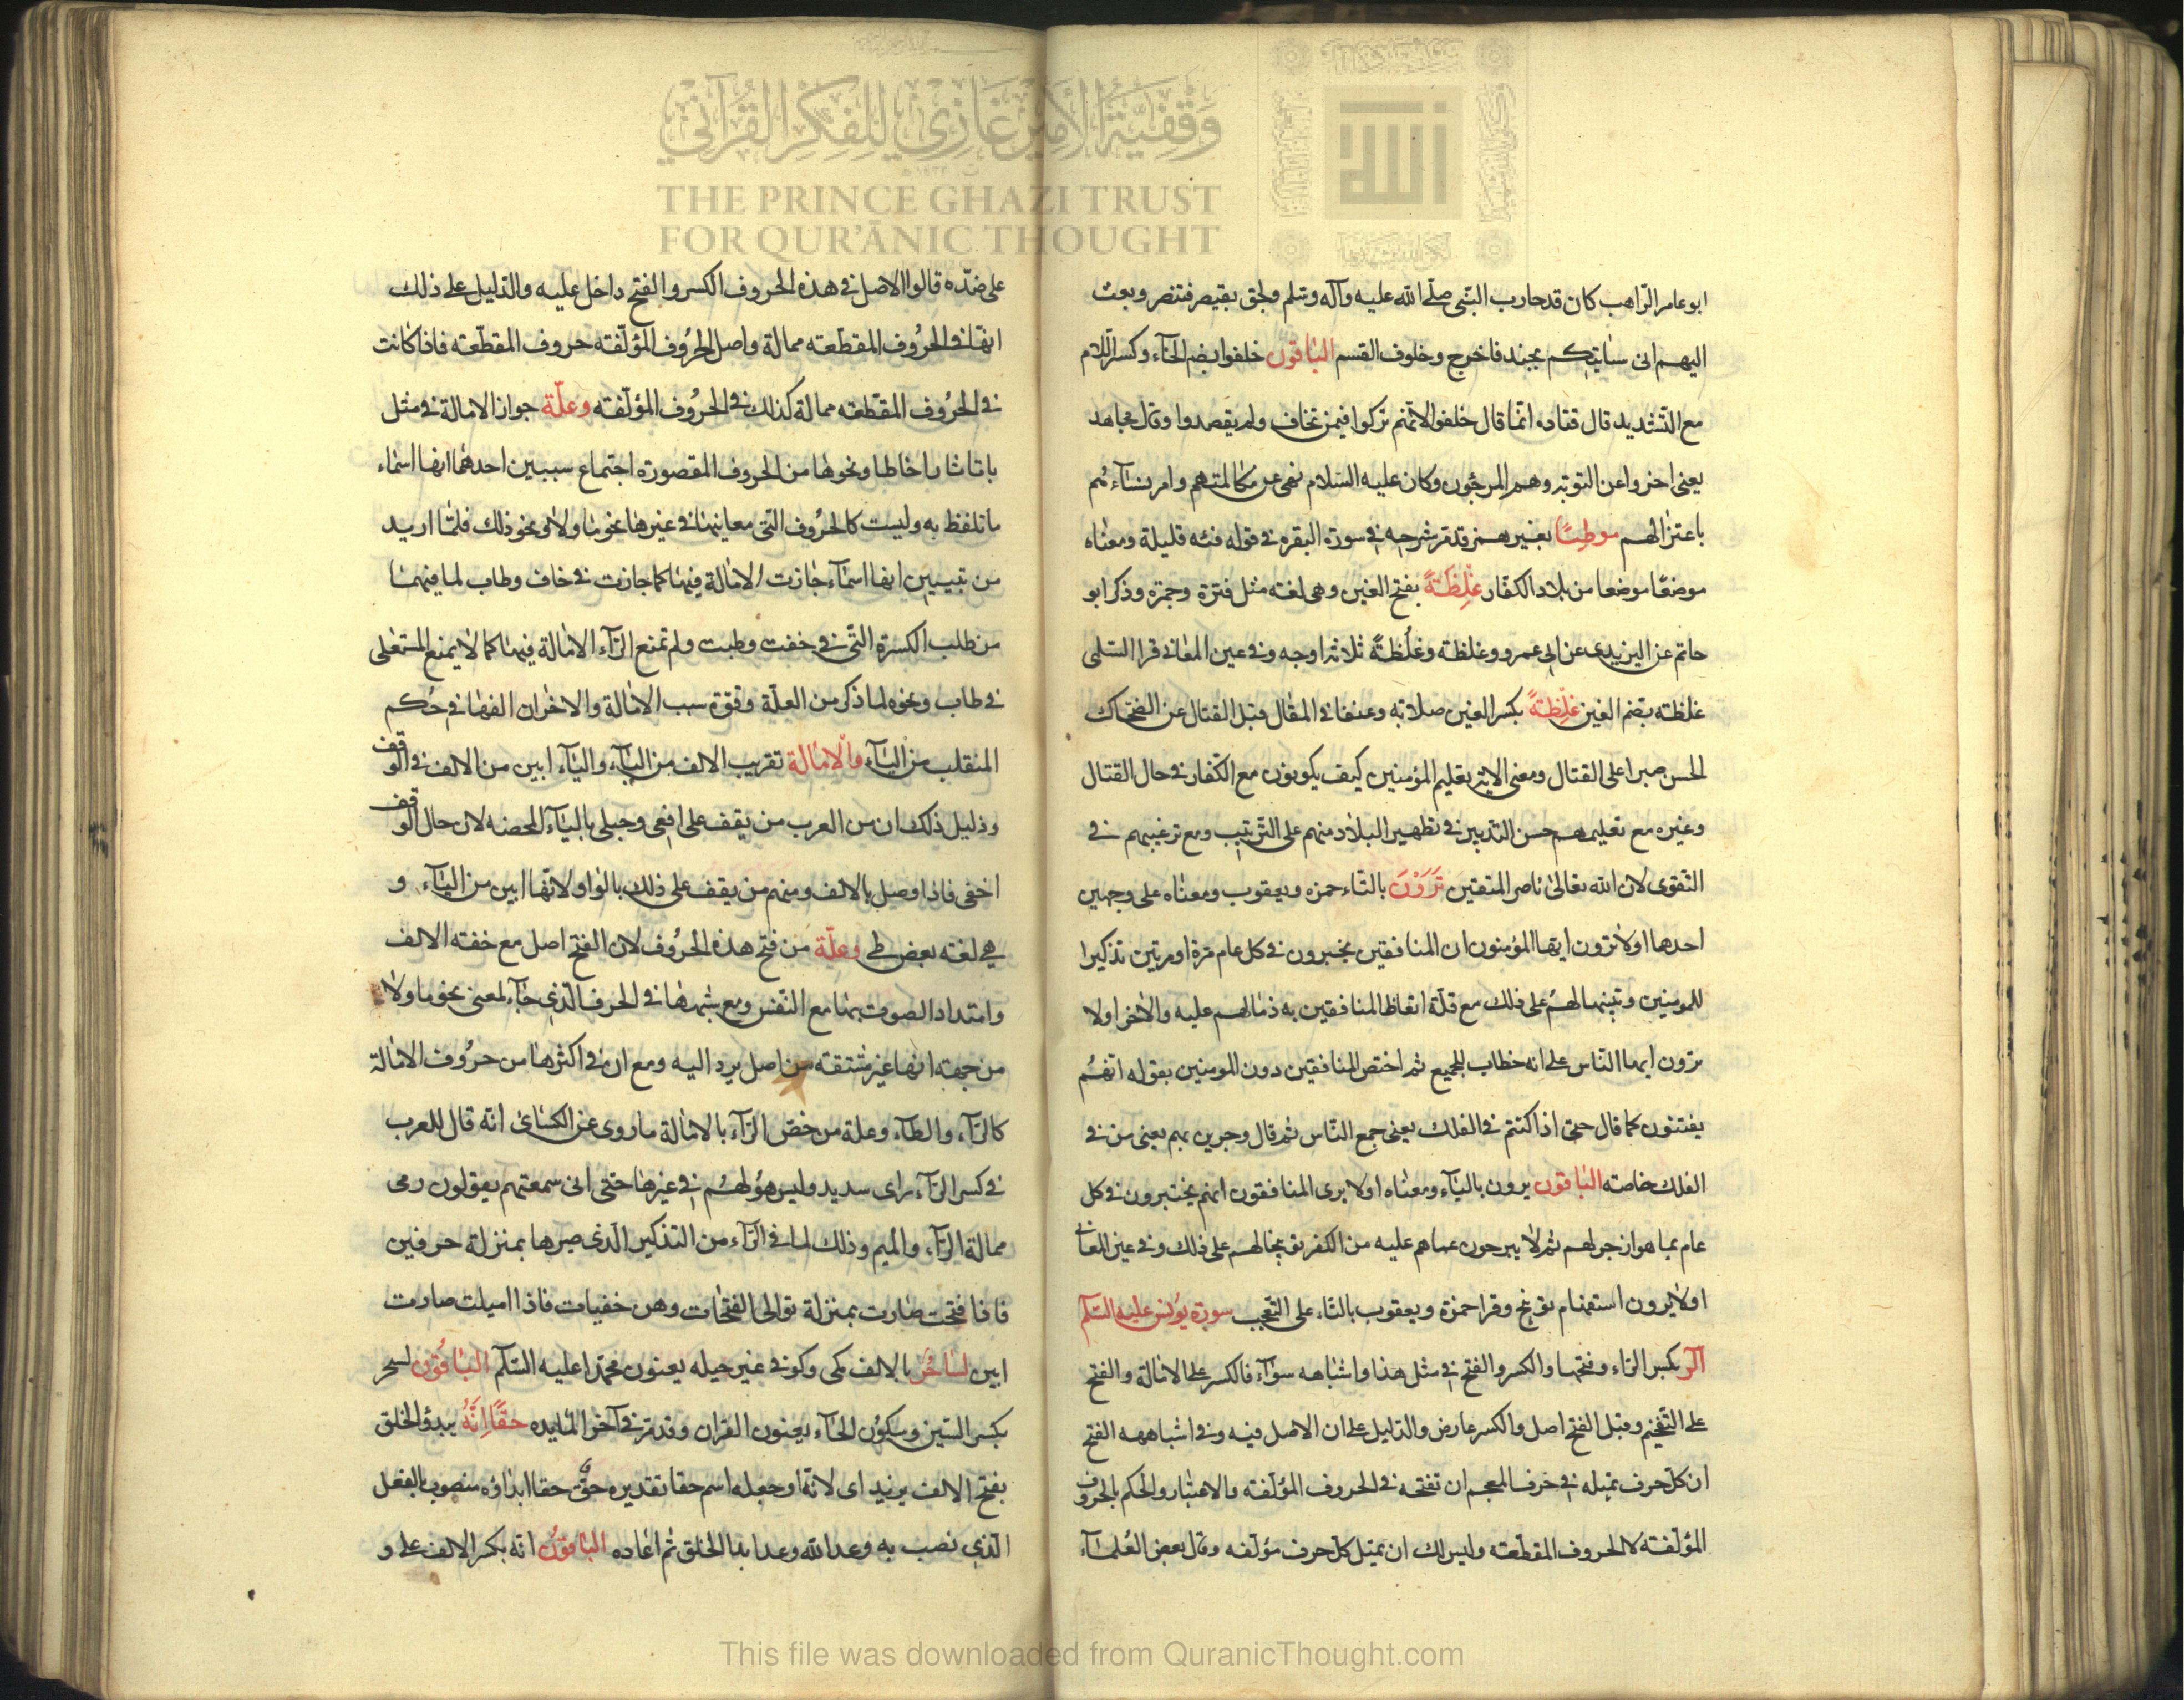 وقفية الأمير غازي للفكر القرآني
THE PRINCE GHAZI TRUST
FOR QUR'ĀNIC THOUGHT
ابو عامر الرّاهب كان قد حارب النّبى صلّى الله عليه وآله وسلم ولحق بقيصر فتنصر وبعث
اليهم انى سٰاتيكم بجند فاخرج وخلوف القسم البٰاقون خلفوا بضم الخآء وكسر اللام
مع التّشديد قال قتاده انّما قال خلفوا لانّهم تركوا فيمن تخلف ولم يقصدوا وقال مجاهد
يعنى اخروا عن التوبة وهم المرجُون وكان عليه السّلام نهى عن مكالمتهم وامر نسآءهم
باعتزالهم موطِيًا بغير همز قد مر شرحه فى سورة البقره فى قوله فئه قليلة ومعنٰاه
موضعًا موضعا من بلاد الكفّار غَلِظَةً بفتح الغين وهى لغه مثل فترة وجمرة وذكر ابو
حاتم عن اليزيدى عن ابى عمرو وغلظه وغلُظةً ثلاثه اوجه وفى عين المعانى قرا السّلمى
غلظه بضم الغين غِلْظةً بكسر الغين صلابه وعنفا فى المقال وقبل القتال عن الضحّاك
الحسن صبرا على القتال ومعنى الايه تعليم المؤمنين كيف يكونون مع الكفّار فى حال القتال
وغيره مع تعليمهم حسن التدبير فى تطهير البلاد منهم على الترتيب ومع ترغيبهم فى
التّقوى لان الله تعالىٰ ناصر المتقين تَرَوْنَ بالتّاء حمزه ويعقوب ومعنٰاه على وجهين
احدها اولا ترون ايّها المؤمنون ان المنافقين يختبرون فى كل عام مرة او مرتين تذكيرا
للمومنين وتنبيها لهُم على ذلك مع قلّة اتعاظ المنافقين به ذمّا لهم عليه والاٰخر اولا
ترون ايها النّاس على انه خطاب للجميع ثم اختص المنافقين دون المومنين بقوله انّهُم
يفتنون كما قال حتى اذا كنتم فى الفلك يعنى جمع النّاس ثم قال وجرين بهم يعنى من فى
الفلك خاصّه البٰاقون يرون باليآء ومعنٰاه اولا يرى المنافقون انهم يختبرون فى كل
عام بما هو ازجر لهم ثم لا يبرحون عما هم عليه من الكفر توبيخا لهم على ذلك وفى عين المعانى
اولا يرون استفهام توبيخ وقرا حمزة ويعقوب بالتاء على التّعجب سورة يُونس عليه السّلم
الٓر بكسر الرّاء وفتحها والكسر والفتح فى مثل هذا واشباهه سوآء فالكسر على الامٰالة والفتح
على التّفخيم وقبل الفتح اصل والكسر عارض والدّليل على ان الاصل فيه وفى اشباهه الفتح
ان كلّ حرف تميله فى حرف المعجم ان تفتحه فى الحروف المؤلّفه والاعتبار والحكم بالحروف
المؤلّفة لا الحروف المقطّعته وليس لك ان تميل كلّ حرف مؤلّفه وقال بعض العُلمآء
على ضدّه قالوا الاصل فى هذه الحروف الكسر والفتح داخل عليه والدّليل على ذلك
انّها فى الحرُوف المقطّعته ممالة واصل الحُروف المؤلّفته حروف المقطّعته فاذا كانت
فى الحرُوف المقطّعته ممالة كذلك فى الحرُوف المؤلّفته وعلّة جواز الامالة فى مثل
با تا ثا را خا طا ونحوها من الحروف المقصورة اجتماع سببين احدهما انها اسمٰاء
ما تلفظ به وليست كالحرُوف التى معانيها فى غيرها نحو ما ولا ونحو ذلك فلمّا اريد
من تبيين انها اسمٰآء جٰازت الامٰالة فيهٰا كما جازت فى خاف وطاب لما فيهما
من طلب الكسرة التّى فى خفت وطبت ولم تمنع الرّآء الامٰالة فيهٰا كما لا يمنع المستعلى
فى طاب ونحوه لما ذكر من العلّة وقوّة سبب الامٰالة والاخٰر ان الفهٰا فى حُكم
المنقلب من اليآء والامٰالة تقريب الالف من اليآء، واليآء ابين من الالف فى الوقف
ودليل ذلك ان من العرب من يقف على افعى وحبلى باليآء المحضه لان حال الوقف
اخفى فاذا وصل بالالف ومنهم من يقف على ذلك بالواو لانّها ابين من اليآء و
هى لغه بعض طى وعلّة من فتح هذه الحرُوف لان الفتح اصل مع خفته الالف
وامتداد الصوت بها مع النّفس ومع شبهها فى الحرف الّذى جٰآء لمعنى نحو ما ولا
من جهته انها غير مشتقته من اصل يرد اليه ومع ان فى اكثرها من حرُوف الامٰالة
كالرّآء، والطآء، وعلة من خصّ الرّآء بالامٰالة ما روى عن الكسٰائ انّه قال للعرب
فى كسر الرّآء راى سديد وليس هو لهُم فى غيرها حتى انى سمعتهم يقولون رمى
ممالة الرّآء، والميم وذلك لما فى الرّآء من التذكير الّذى صيرها بمنزلة حرفين
فاذا فتحت صٰارت بمنزلة توالى الفتحٰات وهن خفيات فاذا اميلت صارت
ابين لسٰاحُر بالالف مكى وكوفى غير حيله يعنون محمّدا عليه السّلم البٰاقُون لسحر
بكسر السّين وسكُون الحٰآء يعنون القران وقد مرّ فى آخر المٰايده حقًّا اِنَّهُ يبدؤ الخلق
بفتح الالف يزيد اى لانّه او جعله اسم حقا تقديره حقّ حقا ابدٰاؤه منصوب بالفعل
الّذى نصب به وعد الله وعدا بدا الخلق ثم اعٰاده البٰاقون انه بكسر الالف على و
This file was downloaded from QuranicThought.com